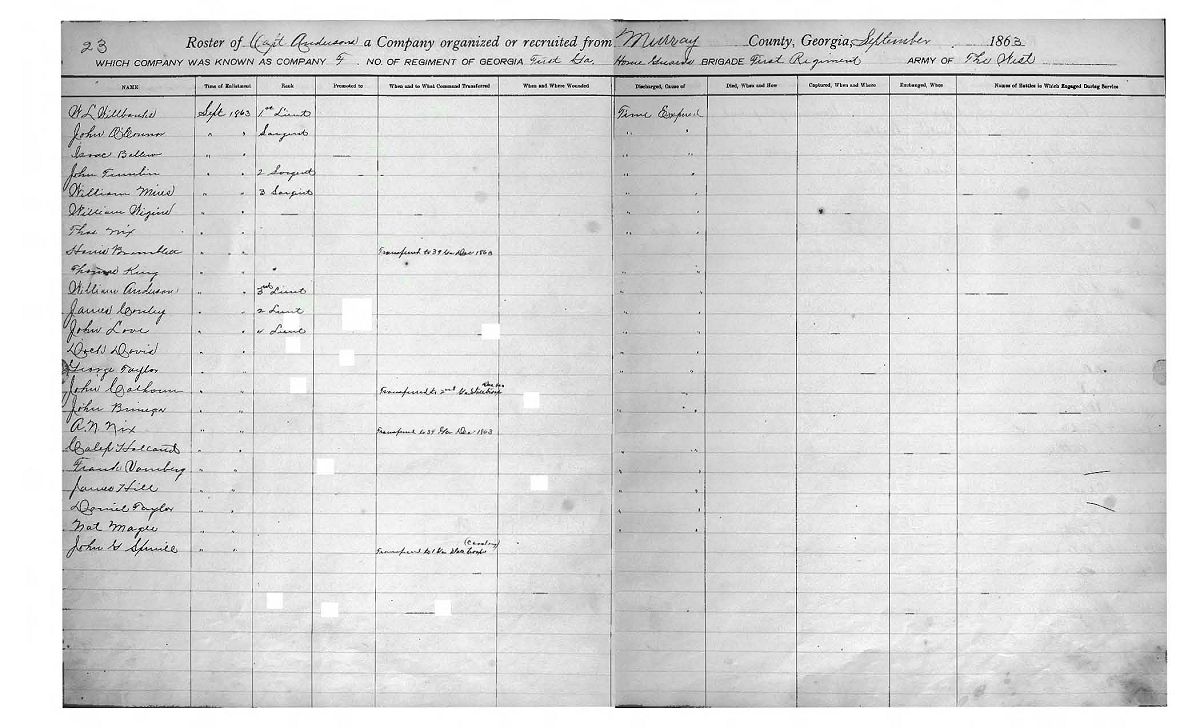 23 Roster of Capt Anderson a Company organized or recruited from Murray County, Georgia, September 1863
WHICH COMPANY WAS KNOWN AS COMPANY F. NO. OF REGIMENT OF GEORGIA First Ga. Home Guards BRIGADE First Regiment ARMY OF The West
NAME Time of Enlistment Rank Promoted to When and to What Command Transferred When and Where Wounded Discharged, Cause of Died, When and How Captured, When and Where Exchanged, When Names of Battles in Which Engaged During Service
W L Willbanks Sept 1863 1st Lieut Time Expired
John O'Connor " " Sargent "
Isaac Ballew " " " "
John Tumlin " " 2 Sargent " "
William Mires " " 3 Sargent " "
William " " " "
Thos Nix " "
Bramblett " " Transferred to 39 Ga Dec 1863
Thomas King " " " "
William Anderson " " 3rd Lieut " "
James Conley " " 2 Lieut " "
John Love " " 4 Lieut " "
Dock Davis " " " "
George Taylor " " " "
John Calhoun " " Transferred to 2nd Ga State troops
John " " " "
A. N. Nix " " Transferred to 39 Ga Dec 1863
Caleb Holland " " " "
Frank " " " "
James Hill " " " "
Daniel Taylor " " " "
Nat Maple " " " "
John G " " Transferred to 1 Ga State troops (Cavalry)